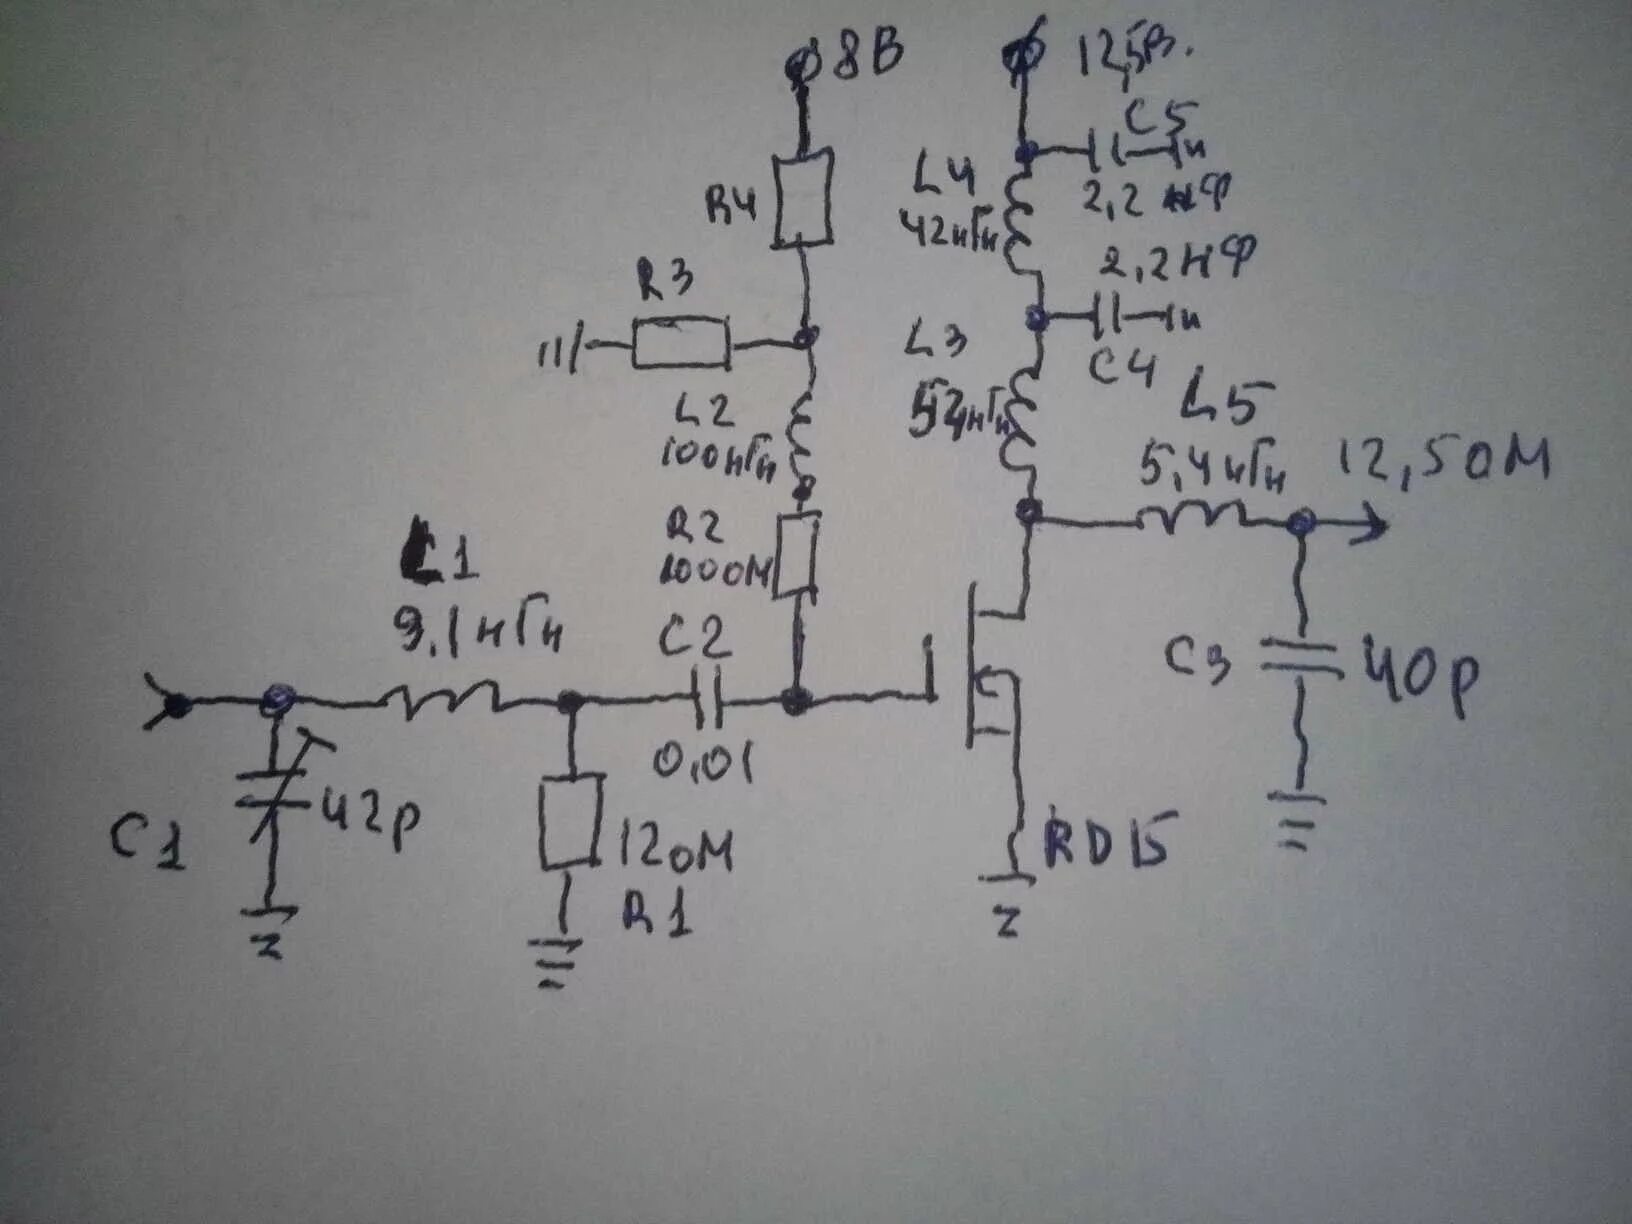 8В
12,5В.
C5
2,2 нФ
L4
42нГн
R4
2,2нФ
R3
L3
C4
L5
5,4нГн
12,5ОМ
L2
100нГн
R2
100ОМ
L1
9,1нГн
C2
0,01
C3
40р
C1
42р
12ОМ
R1
RD15